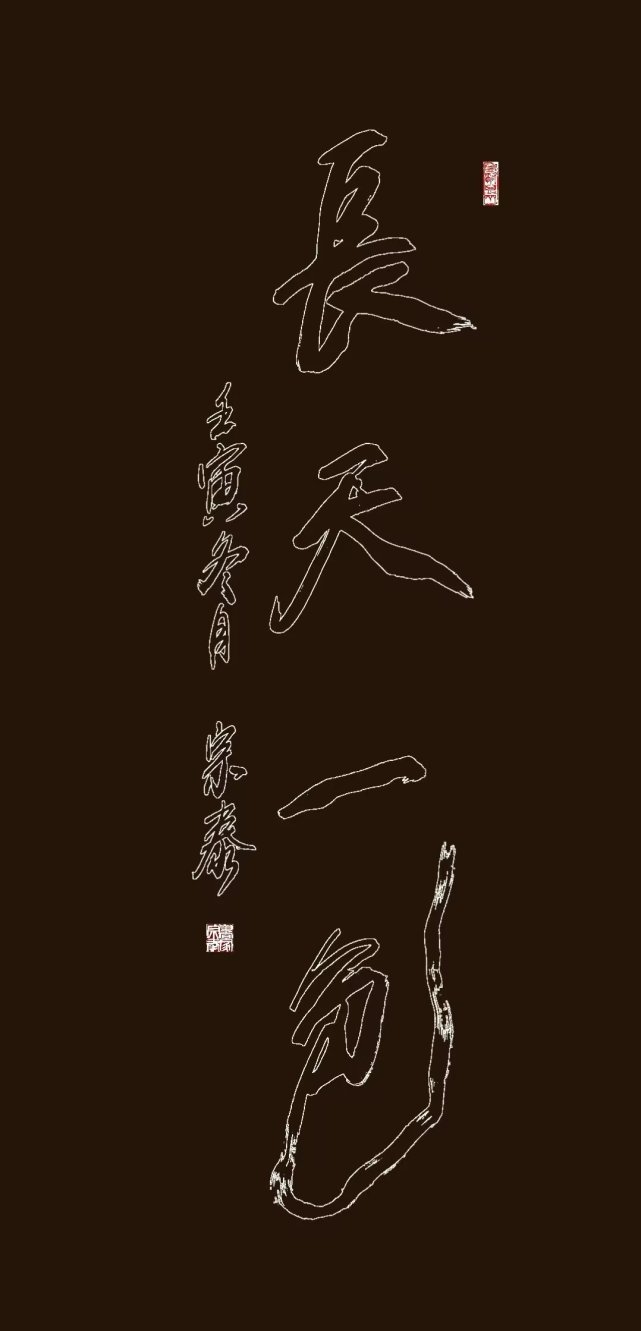 長天一色
壬寅冬月 宗泰